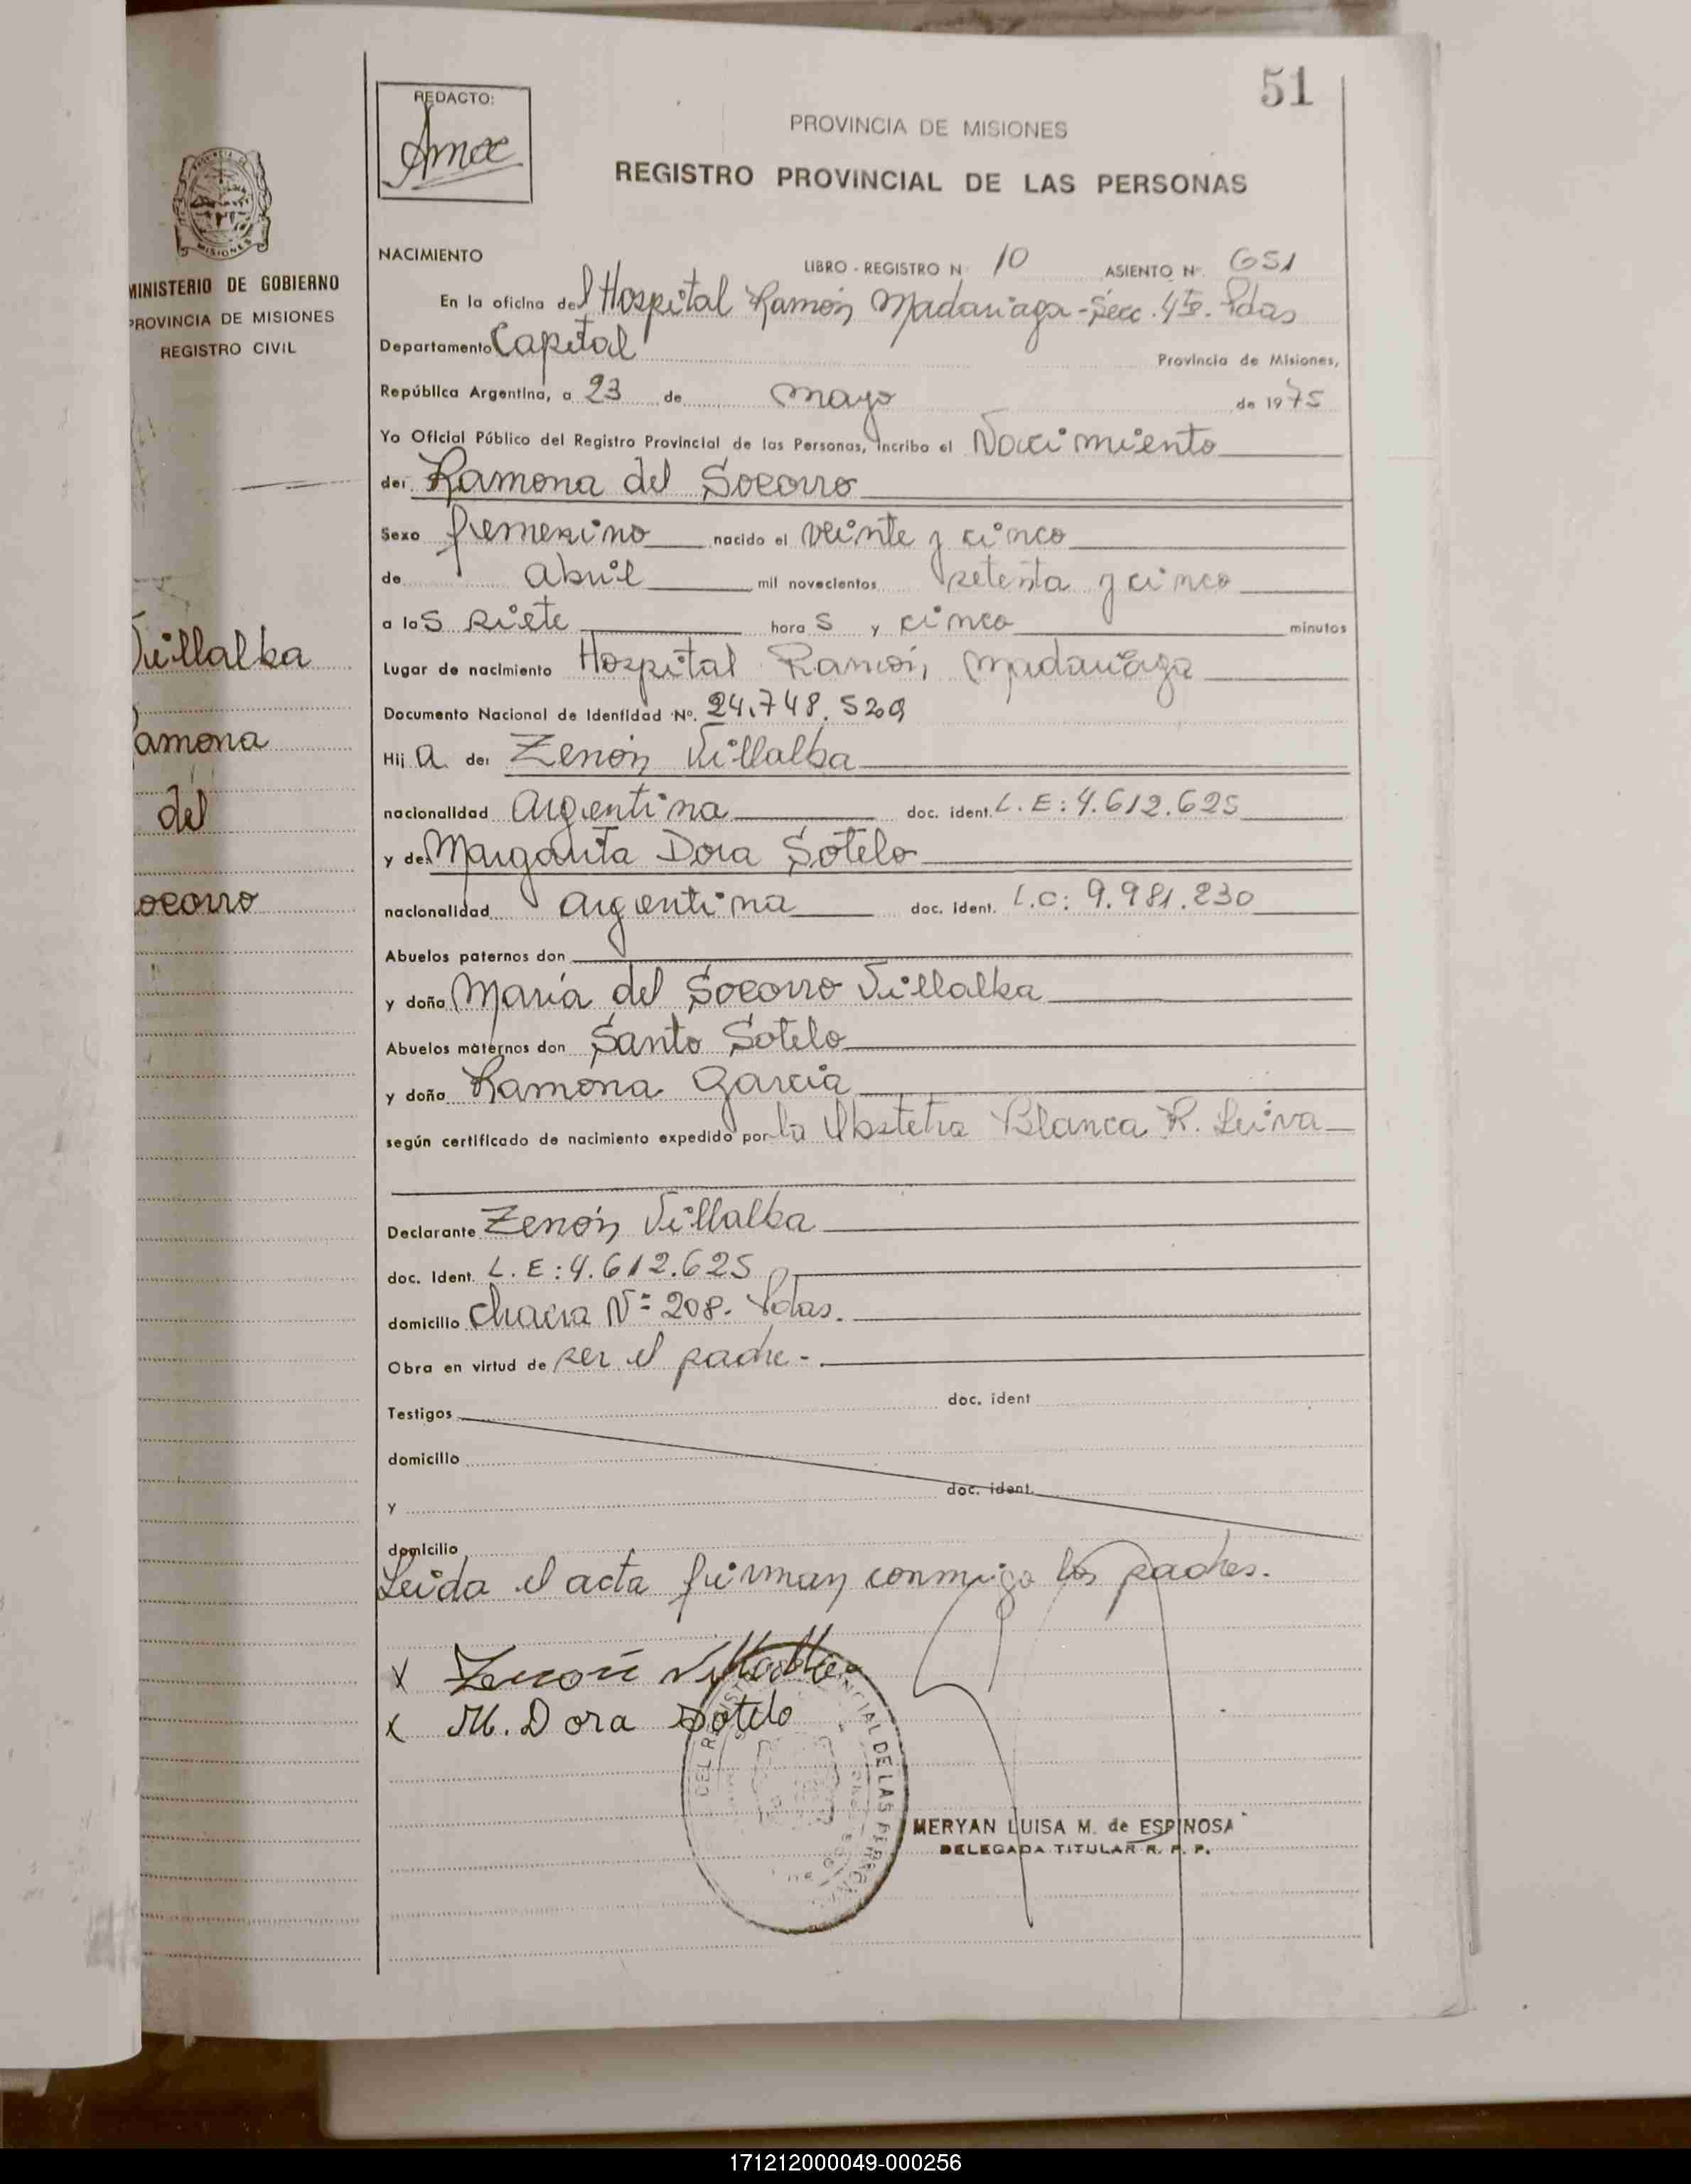 51
REDACTO:
PROVINCIA DE MISIONES
REGISTRO PROVINCIAL DE LAS PERSONAS
MISIONES
MINISTERIO DE GOBIERNO
PROVINCIA DE MISIONES
REGISTRO CIVIL
Villalba
Ramona
del
ocorro
NACIMIENTO LIBRO - REGISTRO N 10 ASIENTO Nº 651
En la oficina del Hospital Ramón Madariaga - Secc. 4ta. Pdas
Departamento Capital Provincia de Misiones,
República Argentina, a 23 de mayo de 1975
Yo Oficial Público del Registro Provincial de las Personas, incribo el Nacimiento
de: Ramona del Socorro
Sexo femenino nacido el veinte y cinco
de abril mil novecientos setenta y cinco
a las siete horas y cinco minutos
Lugar de nacimiento Hospital Ramón Madariaga
Documento Nacional de Identidad Nº. 24.748.529
Hija de: Zenón Villalba
nacionalidad argentina doc. ident. L.E: 4.612.625
y de: Margarita Dora Sotelo
nacionalidad argentina doc. ident. L.C: 9.981.230
Abuelos paternos don
y doña María del Socorro Villalba
Abuelos maternos don Santo Sotelo
y doña Ramona García
según certificado de nacimiento expedido por la Obstetra Blanca R. Leiva
Declarante Zenón Villalba
doc. Ident. L.E: 4.612.625
domicilio chacra Nº 208. Pdas.
Obra en virtud de ser el padre.-
Testigos doc. ident
domicilio
y doc. ident.
domicilio
Leida el acta firman conmigo los padres.
x Zenon Villalba
x M. Dora Sotelo
MERYAN LUISA M. de ESPINOSA
DELEGADA TITULAR R. P. P.
171212000049-000256